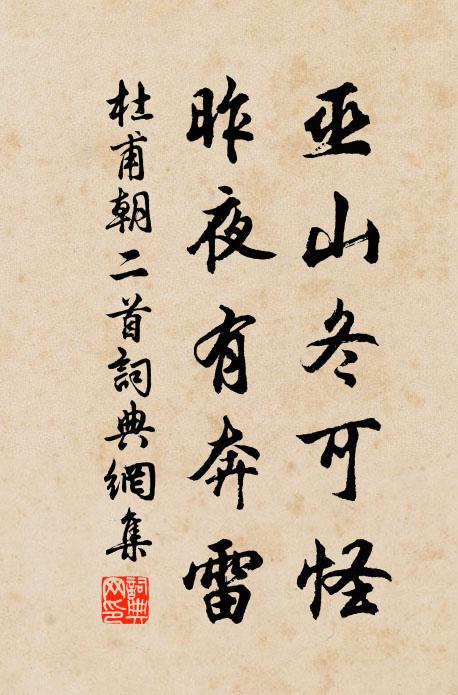 巫山冬可怪
昨夜有奔雷
杜甫朝二首詞典網集
詞典
网印